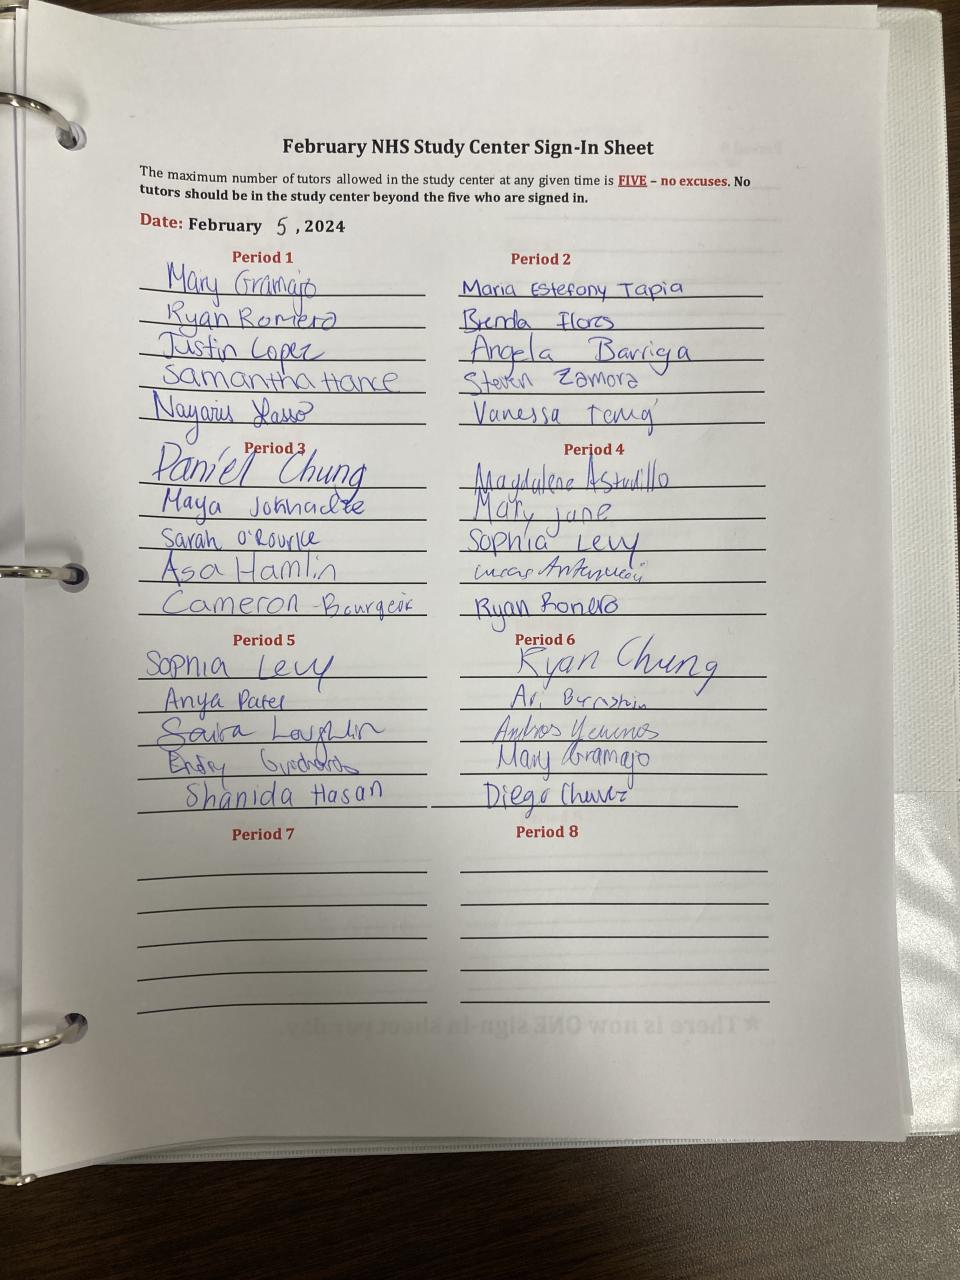 February NHS Study Center Sign-In Sheet
The maximum number of tutors allowed in the study center at any given time is FIVE – no excuses. No
tutors should be in the study center beyond the five who are signed in.
Date: February 5, 2024
Period 1
Mary Gramajo
Ryan Romero
Justin Lopez
Samantha Hance
Nayaris Lasso
Period 2
Maria Estefony Tapia
Brenda Flores
Angela Barriga
Steven Zamora
Vanessa
Period 3
Daniel Chung
Maya
Sarah O'Rourke
Asa Hamlin
Cameron Bourgeois
Period 4
Magdalene Astudillo
Mary Jane
Sophia Levy
Lucas
Ryan Romero
Period 5
Sophia Levy
Anya Patel
Loughlin
Shanida Hasan
Period 6
Ryan Chung
Ari
Mary Gramajo
Diego Chavez
Period 7
Period 8